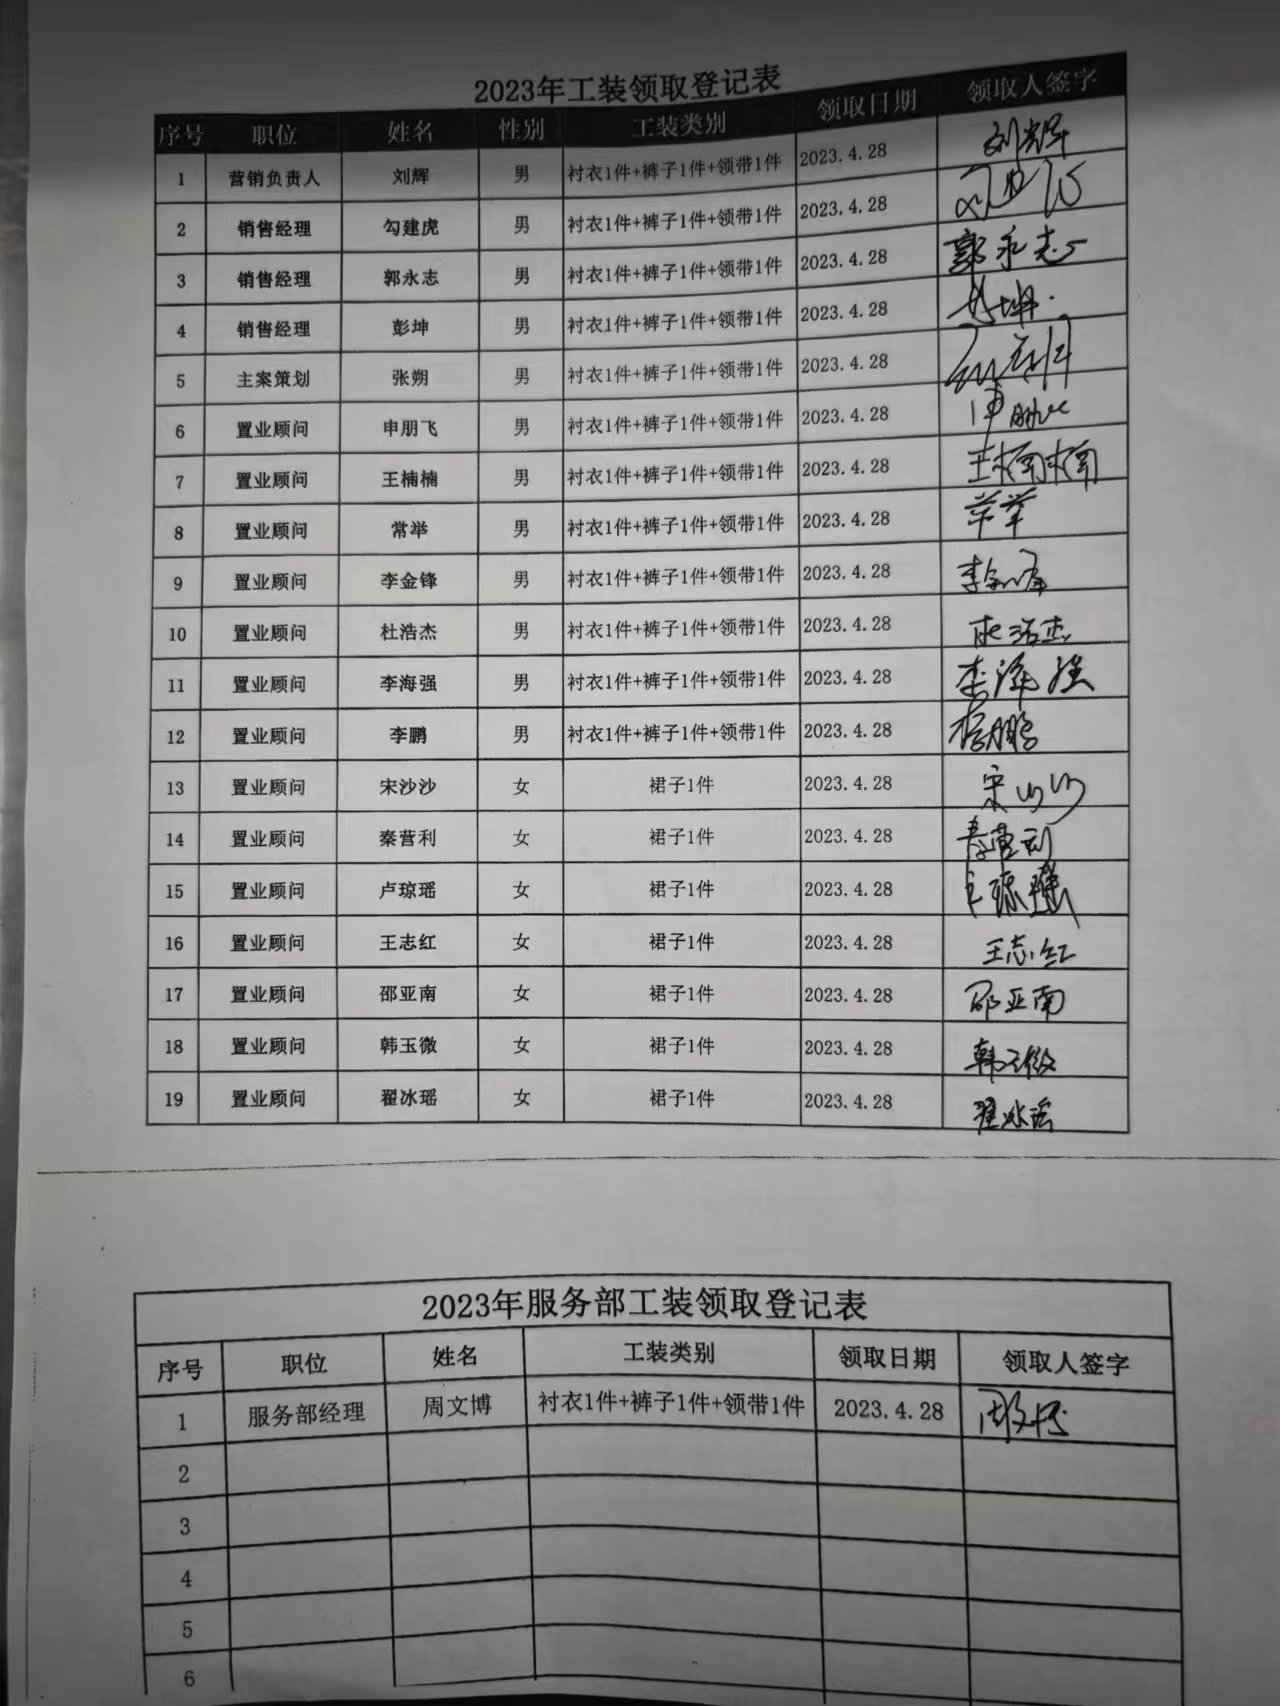 2023年工装领取登记表
序号 职位 姓名 性别 工装类别 领取日期 领取人签字
1 营销负责人 刘辉 男 衬衣1件+裤子1件+领带1件 2023.4.28 刘辉
2 销售经理 勾建虎 男 衬衣1件+裤子1件+领带1件 2023.4.28
3 销售经理 郭永志 男 衬衣1件+裤子1件+领带1件 2023.4.28 郭永志
4 销售经理 彭坤 男 衬衣1件+裤子1件+领带1件 2023.4.28 彭坤
5 主案策划 张朔 男 衬衣1件+裤子1件+领带1件 2023.4.28
6 置业顾问 申朋飞 男 衬衣1件+裤子1件+领带1件 2023.4.28 申朋飞
7 置业顾问 王楠楠 男 衬衣1件+裤子1件+领带1件 2023.4.28 王楠楠
8 置业顾问 常举 男 衬衣1件+裤子1件+领带1件 2023.4.28 常举
9 置业顾问 李金锋 男 衬衣1件+裤子1件+领带1件 2023.4.28 李金锋
10 置业顾问 杜浩杰 男 衬衣1件+裤子1件+领带1件 2023.4.28 杜浩杰
11 置业顾问 李海强 男 衬衣1件+裤子1件+领带1件 2023.4.28 李海强
12 置业顾问 李鹏 男 衬衣1件+裤子1件+领带1件 2023.4.28 李鹏
13 置业顾问 宋沙沙 女 裙子1件 2023.4.28 宋沙沙
14 置业顾问 秦营利 女 裙子1件 2023.4.28 秦营利
15 置业顾问 卢琼瑶 女 裙子1件 2023.4.28 卢琼瑶
16 置业顾问 王志红 女 裙子1件 2023.4.28 王志红
17 置业顾问 邵亚南 女 裙子1件 2023.4.28 邵亚南
18 置业顾问 韩玉微 女 裙子1件 2023.4.28 韩玉微
19 置业顾问 翟冰瑶 女 裙子1件 2023.4.28 翟冰瑶
2023年服务部工装领取登记表
序号 职位 姓名 工装类别 领取日期 领取人签字
1 服务部经理 周文博 衬衣1件+裤子1件+领带1件 2023.4.28 周文博
2
3
4
5
6